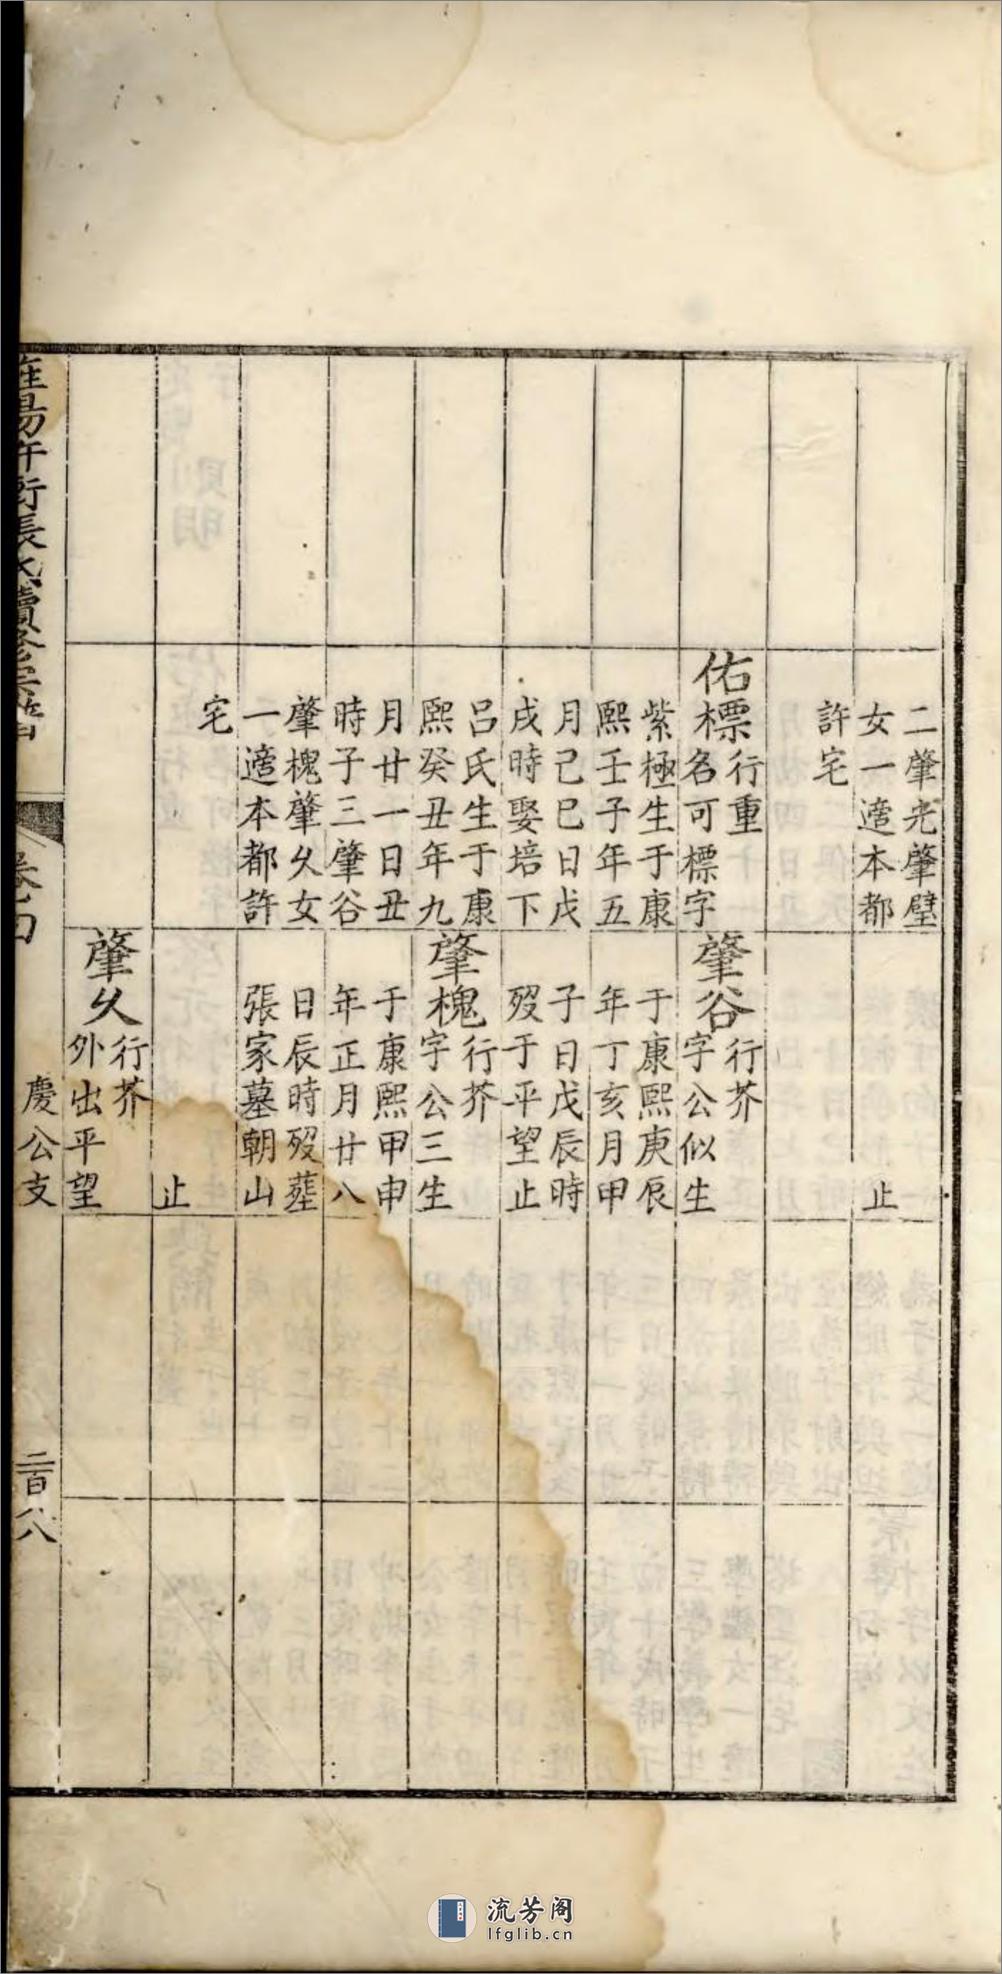 二肇光肇璧
女一適本都
許宅
佑標行重
名可標字
紫極生于康
熙壬子年五
月己巳日戊
戌時娶培下
呂氏生于康
熙癸丑年九
月廿一日丑
時子三肇谷
肇槐肇乆女
一適本都許
宅
止
肇谷行芥
字公似生
于康熙庚辰
年丁亥月甲
子日戊辰時
歿于平望止
肇槐行芥
字公三生
于康熙甲申
年正月廿八
日辰時歿塟
張家墓朝山
止
肇乆行芥
外出平望
張氏續修宗譜
卷之四
慶公支
二百八
流芳阁
lfglib.cn